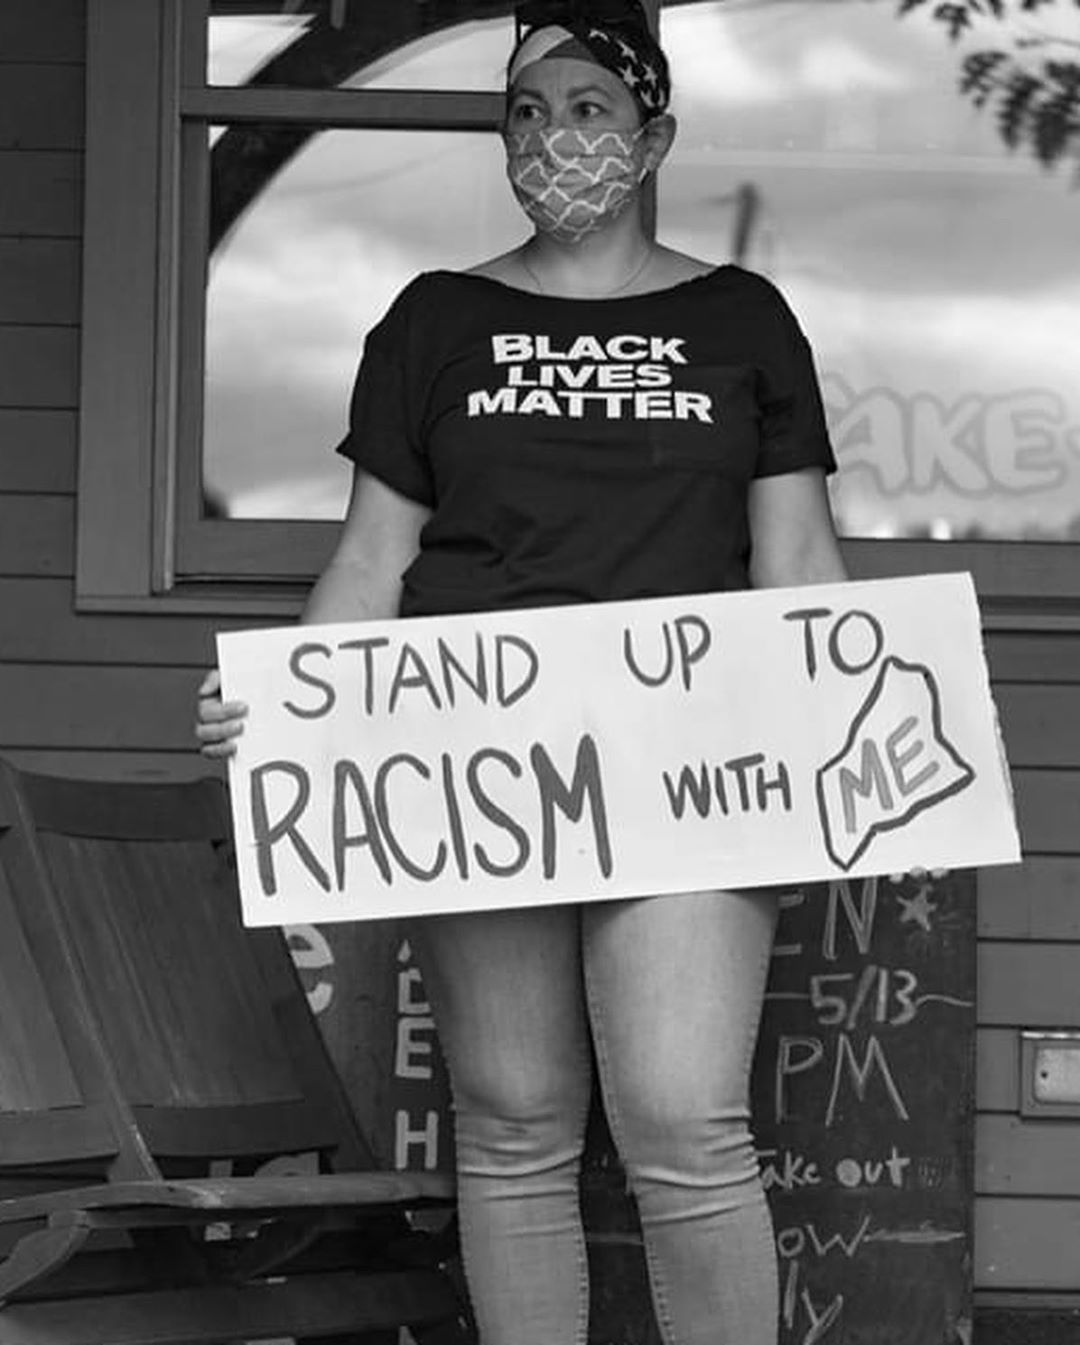 BLACK
LIVES
MATTER
AKE
STAND UP TO
RACISM WITH ME
5/13
PM
out